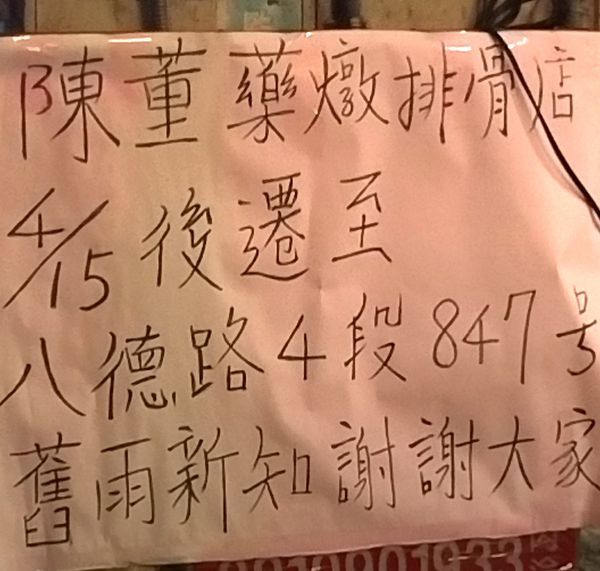 陳董藥燉排骨店
4/15後遷至
八德路4段847号
舊雨新知謝謝大家
0910901933